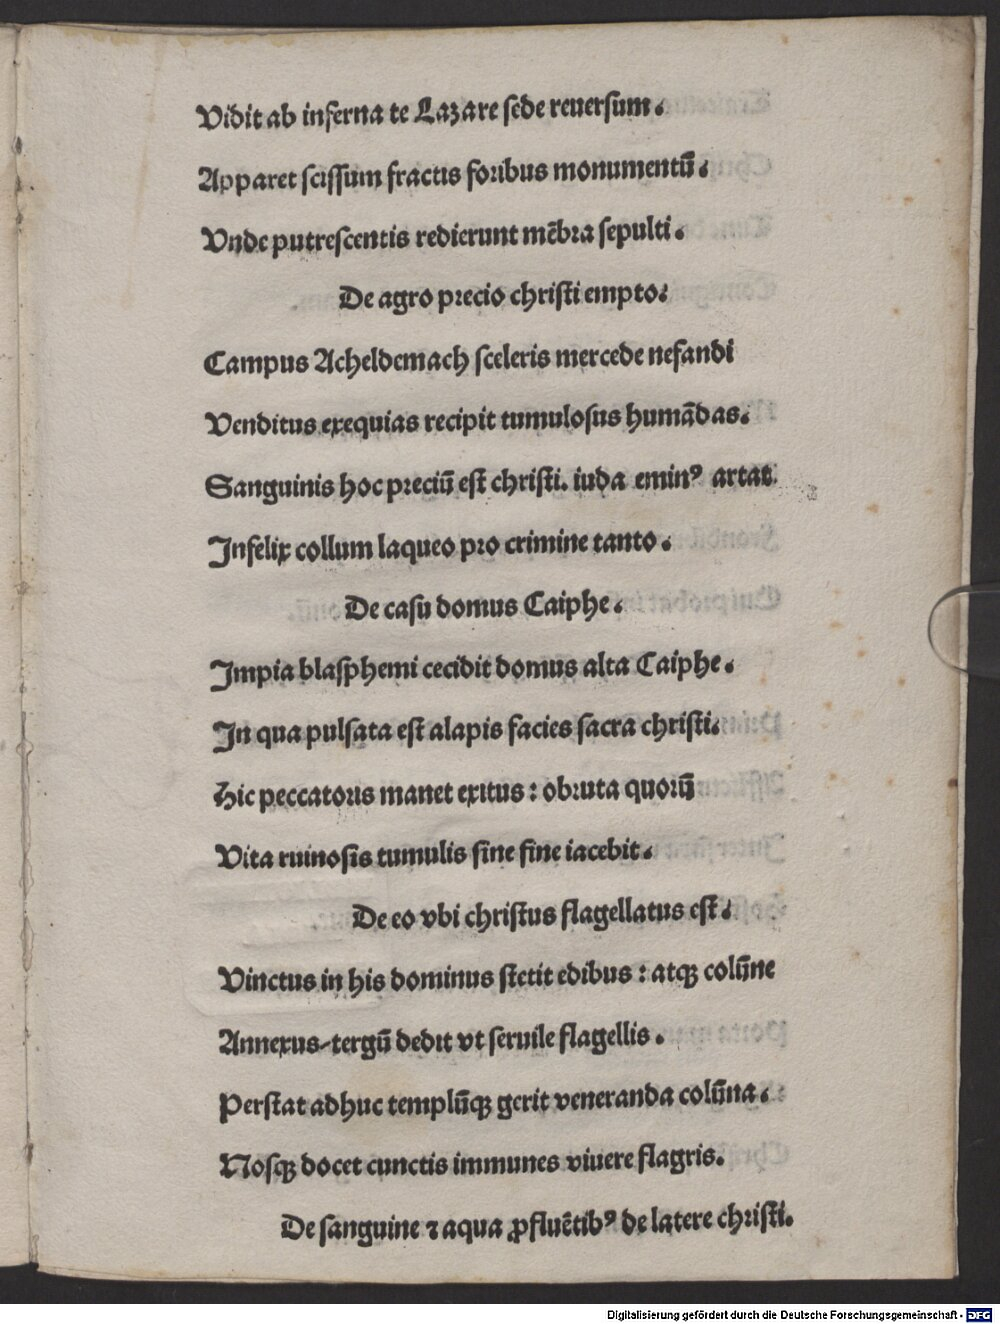 Vidit ab inferna te Lazare sede reuersum.
Apparet scissum fractis foribus monumentū.
Vnde putrescentis redierunt mēbra sepulti.
De agro precio christi empto.
Campus Acheldemach sceleris mercede nefandi
Venditus exequias recipit tumulosus humādas.
Sanguinis hoc preciū est christi. iuda eminꝰ artat.
Infelix collum laqueo pro crimine tanto.
De casu domus Caiphe.
Impia blasphemi cecidit domus alta Caiphe.
In qua pulsata est alapis facies sacra christi.
Hic peccatoris manet exitus: obruta quorū
Vita ruinosis tumulis sine fine iacebit.
De eo vbi christus flagellatus est.
Vinctus in his dominus stetit edibus: atqꝫ colūne
Annexus tergū dedit vt seruile flagellis.
Perstat adhuc templūqꝫ gerit veneranda colūna.
Nosqꝫ docet cunctis immunes viuere flagris.
De sanguine ⁊ aqua ꝓfluētibꝰ de latere christi.
Digitalisierung gefördert durch die Deutsche Forschungsgemeinschaft - DFG